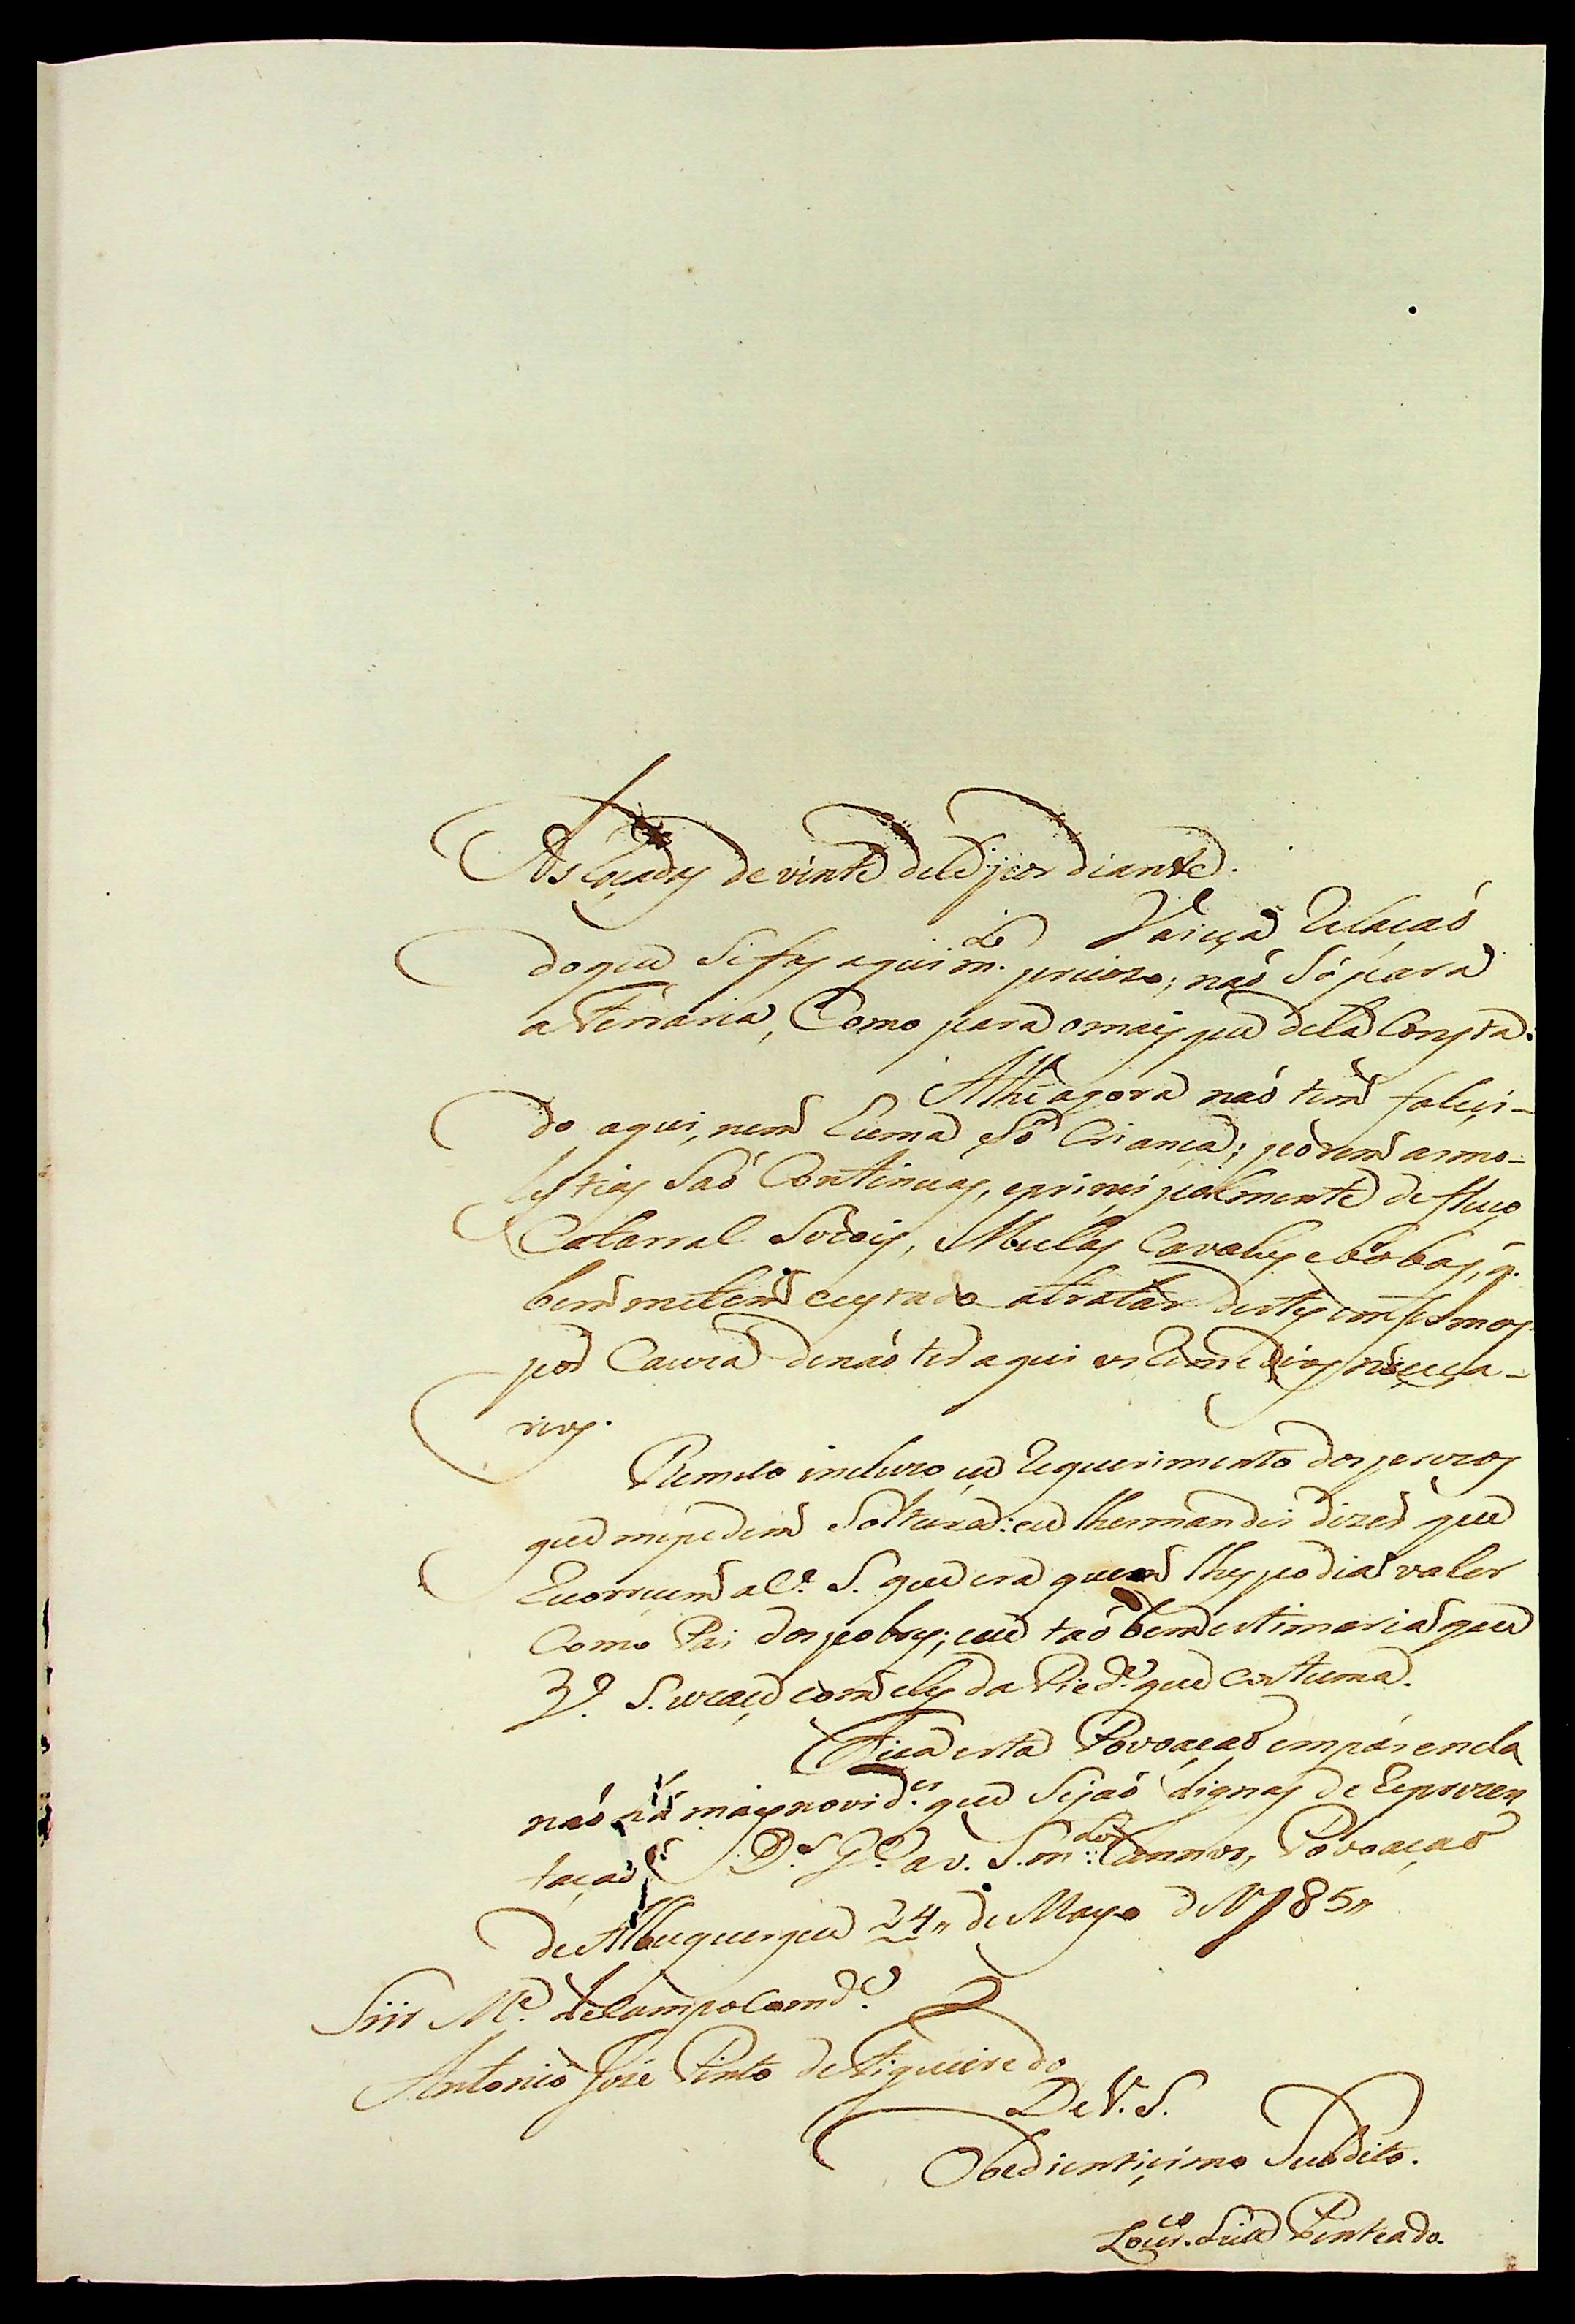 de vinte dele por diante.
Vai eça Relaçaõ
do que se fas aqui m.to percizo; naõ só para
a Ferraria, Como para o mais que dela Consta.
Athe agora naõ tem faleçi-
do aqui, nem huma Só Criança; porem as mo-
lestias Saõ Continuas, e prinçipalmente defluço
Catarral Mulas Cavalos e bobas, q.
bem me tem custado a tratar destes emfermos
por Cauza de naõ ter aqui os Remedios neceça-
rios.
Remeto incluzo eçe Requerimento dos prezos
que me pedem Soltura: eu lhes mandei dizer que
Recorreçem a V. S. que era quem lhes podia valer
Como Pai dos pobres; e eu taõ bem estimaria que
V. S. uzaçe com eles da Pied.e que Costuma.
Fica esta Povoaçaõ em pás e nela
naõ há mais novid.es que Sejaõ dignas de Reprezen
taçaõ D.s G.e a V. S. m.tos annos, Povoaçaõ
de Albuquerque 24,, de Mayo de 1785,,
Snr M.e de Campo Comd.e
Antonio Joze Pinto de Figueiredo
De V. S.
Obedientiçimo Subdito.
Penteado.